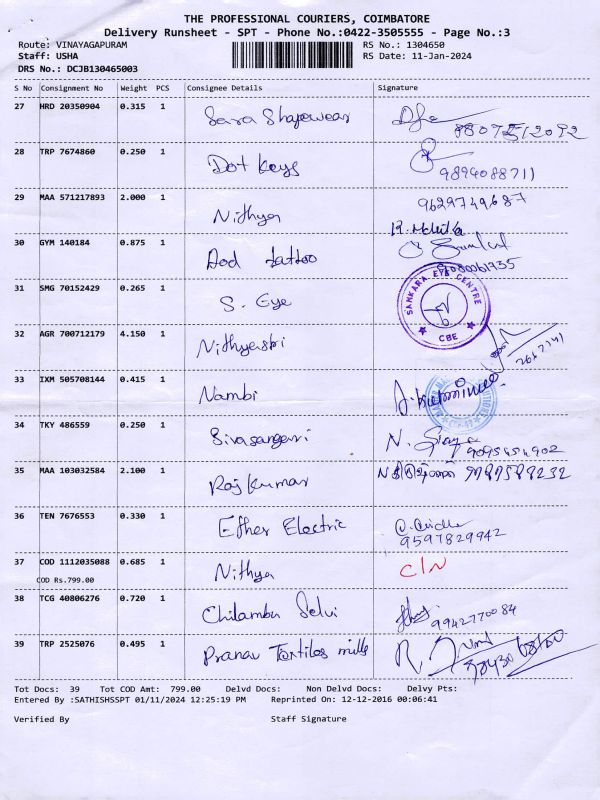 THE PROFESSIONAL COURIERS, COIMBATORE
Delivery Runsheet - SPT - Phone No.:0422-3505555 - Page No.:3
Route: VINAYAGAPURAM RS No.: 1304650
Staff: USHA RS Date: 11-Jan-2024
DRS No.: DCJB130465003
S No Consignment No Weight PCS Consignee Details Signature
27 HRD 20350904 0.315 1 Sara Shapewear
28 TRP 7674860 0.250 1 Dot Keys 9894088711
29 MAA 571217893 2.000 1 Nithya 9629749687
30 GYM 140184 0.875 1 Aod tattoo
31 SMG 70152429 0.265 1 S. Eye SANKARA EYE CENTRE CBE
32 AGR 700712179 4.150 1
33 IXM 505708144 0.415 1 Nambi
34 TKY 486559 0.250 1 Sivasangari 9095454902
35 MAA 103032584 2.100 1 Raj Kumar
36 TEN 7676553 0.330 1 Ether Electric 9597829942
37 COD 1112035088 0.685 1 Nithya C/N
COD Rs.799.00
38 TCG 40806276 0.720 1 Chilambu Selvi 9942770084
39 TRP 2525076 0.495 1 Pranav Textiles mills
Tot Docs: 39 Tot COD Amt: 799.00 Delvd Docs: Non Delvd Docs: Delvy Pts:
Entered By :SATHISHSSPT 01/11/2024 12:25:19 PM Reprinted On: 12-12-2016 00:06:41
Verified By Staff Signature